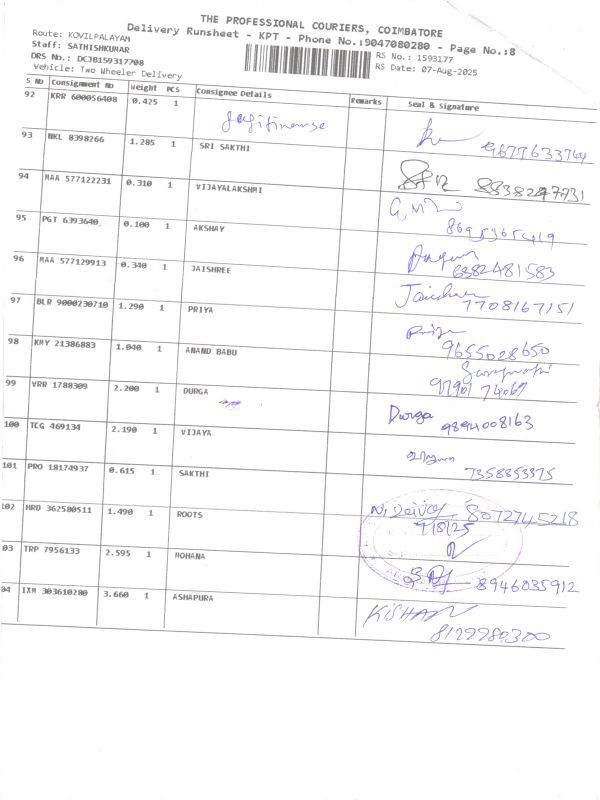 THE PROFESSIONAL COURIERS, COIMBATORE
Delivery Runsheet - KPT - Phone No.:9047080280 - Page No.:8
Route: KOVILPALAYAM
Staff: SATHISHKUMAR
DRS No.: DCJB159317708
Vehicle: Two Wheeler Delivery
RS No.: 1593177
RS Date: 07-Aug-2025
S No Consignment No Weight PCS Consignee Details Remarks Seal & Signature
92 KRR 600056408 0.425 1
9677633744
93 NKL 8398266 1.285 1 SRI SAKTHI
8838247731
94 MAA 577122231 0.310 1 VIJAYALAKSHMI
8695365419
95 PGT 6393640 0.100 1 AKSHAY
6382481583
96 MAA 577129913 0.340 1 JAISHREE
7708167151
97 BLR 9000230710 1.290 1 PRIYA
Priya
9655028650
98 KMY 21386883 1.040 1 ANAND BABU
99 VRR 1788309 2.200 1 DURGA
Durga 9894008163
100 TCG 469134 2.190 1 VIJAYA
7358853375
101 PRO 18174937 0.615 1 SAKTHI
8072745218
102 HRD 362580511 1.490 1 ROOTS
7/8/25
03 TRP 7956133 2.595 1 MOHANA
8946035912
04 IXM 303610280 3.660 1 ASHAPURA
KISHAN
8122980300